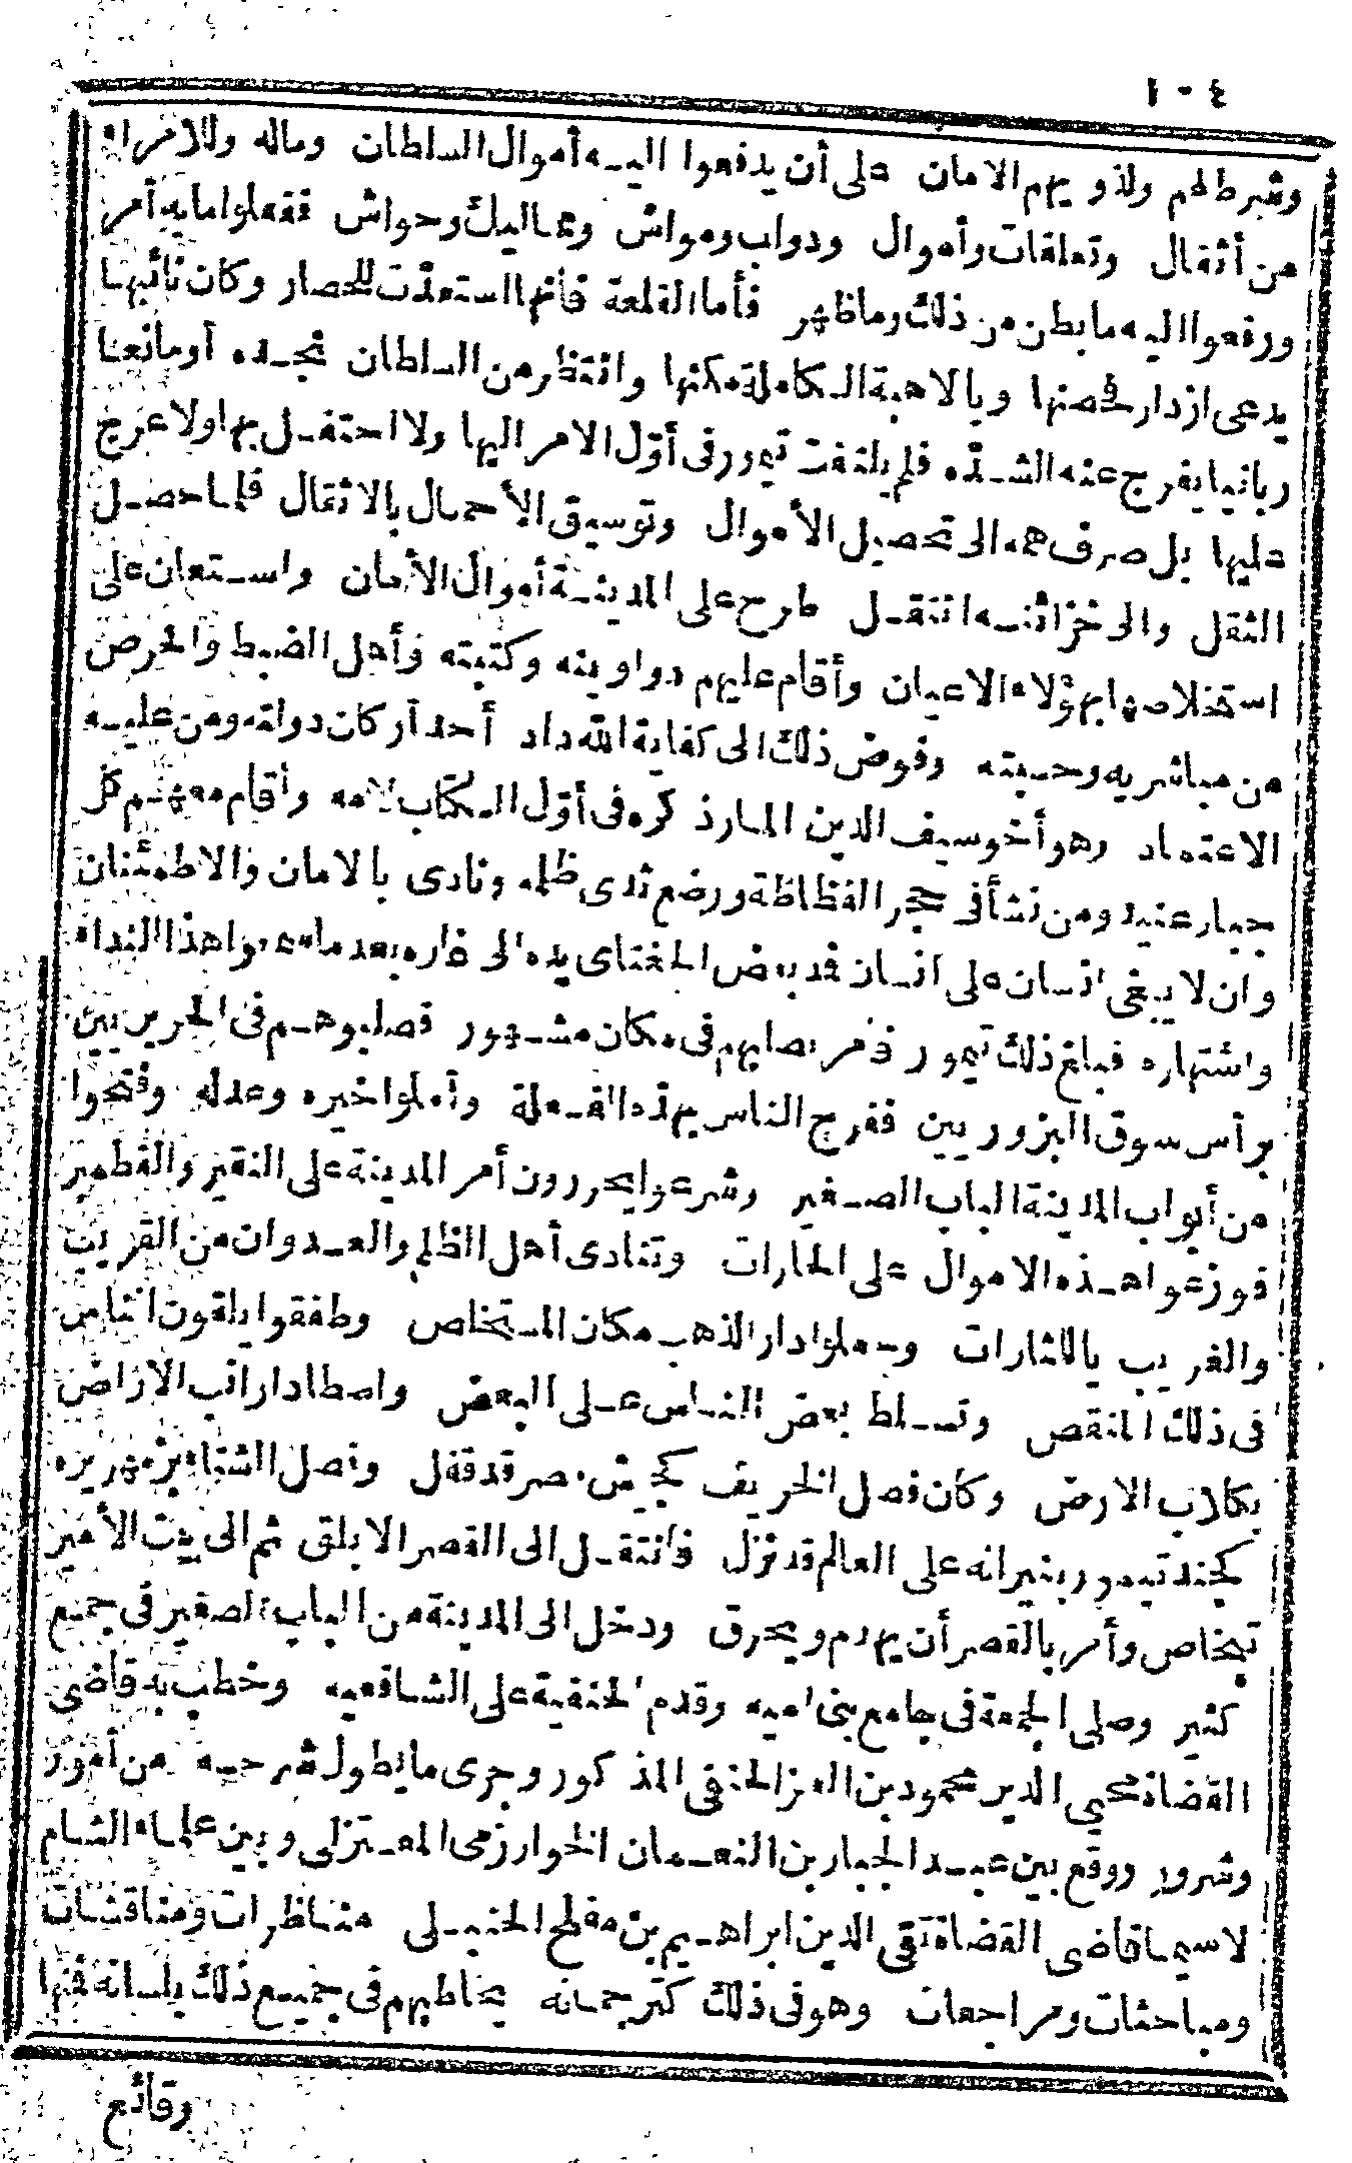 ١٠٤
وشرط لهم ولذويهم الامان على أن يدفعوا اليه أموال السلطان وماله وللامراء
من أثقال وتعلقات وأموال ودواب ومواش ومماليك وحواش ففعلوا ما به أمر
ورفعوا اليه ما بطن من ذلك وما ظهر فأما القلعة فانها استعدّت للحصار وكان نائبها
يدعى ازدار فحصنها وبالاهبة الكاملة مكنها وانتظر من السلطان نجده أو مانعا
ربانيا يفرج عنه الشدّه فلم يلتفت تيمور فى أوّل الامر اليها ولا احتفل بها ولا عرج
عليها بل صرف همه الى تحصيل الأموال وتوسيق الأحمال بالاثقال فلما حصل
الثقل والى خزائنه انتقل طرح على المدينة أموال الأمان واستعان على
استخلاصها بهؤلاء الاعيان وأقام عليهم دواوينه وكتبته وأهل الضبط والحرص
من مباشريه وحسبته وفوض ذلك الى كفاية الله داد أحد أركان دولته ومن عليه
الاعتماد وهو أخو سيف الدين المار ذكره فى أوّل الكتاب لامه وأقام معهم كل
جبار عنيد ومن نشأ فى حجر الفظاظة ورضع ثدى ظلمه ونادى بالامان والاطمئنان
وان لا يبغى انسان على انسان فمد بعض الجغتاى يده الى غاره بعد ما سمعوا هذا النداء
واشتهاره فبلغ ذلك تيمور فأمر بصلبهم فى مكان مشهور فصلبوهم فى الحريريين
برأس سوق البزوريين ففرح الناس بهذه الفعلة وأملوا خيره وعدله وفتحوا
من أبواب المدينة الباب الصغير وشرعوا يحررون أمر المدينة على النقير والقطمير
فوزعوا هذه الاموال على الحارات وتنادى أهل الظلم والعدوان من القريب
والغريب يا للثارات وجعلوا دار الذهب مكان المستخلص وطفقوا يلقون الناس
فى ذلك المنقص وتسلط بعض الناس على البعض واصطادا رانب الاراض
بكلاب الارض وكان فصل الخريف كجيش مصر قد قفل وفصل الشتاء بزمهريره
كجند تيمور بنيرانه على العالم قد نزل فانتقل الى القصر الابلق ثم الى بيت الأمير
تبخاص وأمر بالقصر أن يهدم ويحرق ودخل الى المدينة من الباب الصغير فى جمع
كثير وصلى الجمعة فى جامع بنى اميه وقدم الحنفية على الشافعيه وخطب به قاضى
القضاة محيى الدين محمود بن العز الحنفى المذكور وجرى ما يطول شرحه من أمور
وشرور ووقع بين عبد الجبار بن النعمان الخوارزمى المعتزلى وبين علماء الشام
لاسيما قاضى القضاة تقى الدين ابراهيم بن مفلح الحنبلى مناظرات ومناقشات
ومباحثات ومراجعات وهو فى ذلك كترجمانه يخاطبهم فى جميع ذلك بلسانه فمنها
وقائع